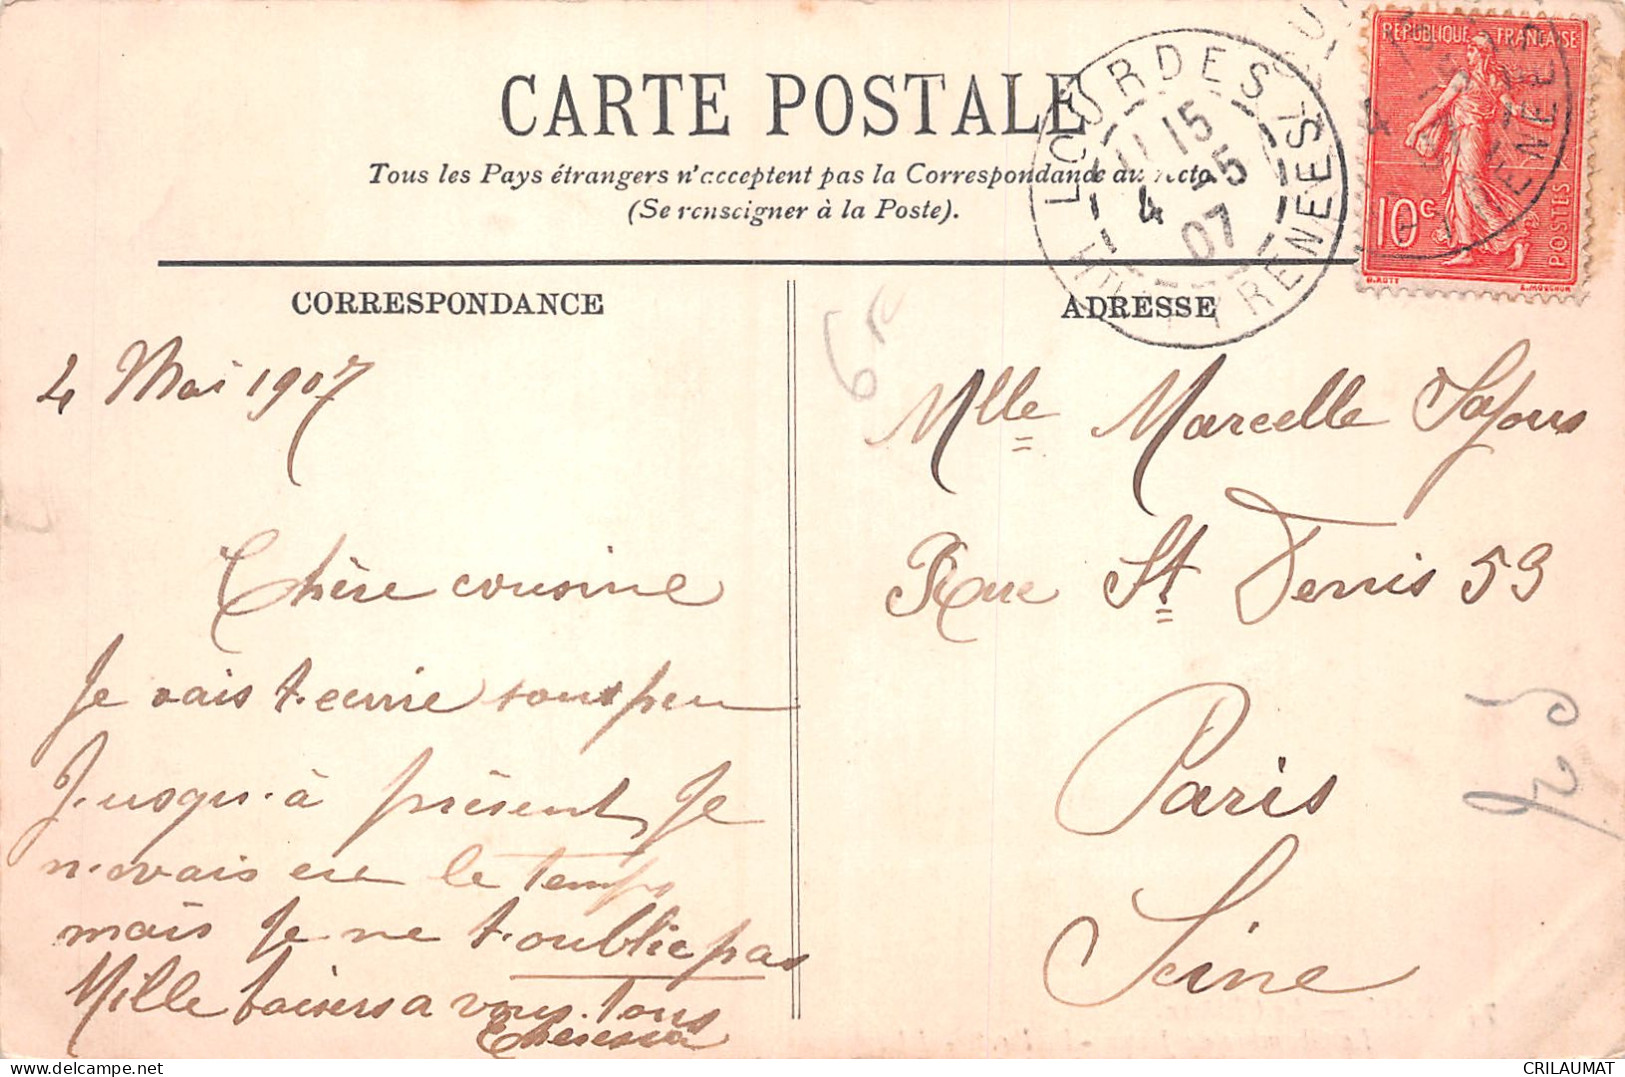 CARTE POSTALE
Tous les Pays étrangers n'acceptent pas la Correspondance au recto
(Se renseigner à la Poste).
LOURDES
11 15
4 -5
07
HTES PYRENEES
REPUBLIQUE FRANÇAISE
10c
POSTES
O. ROTY
E. MOUCHON
CORRESPONDANCE
ADRESSE
4 Mai 1907
Chère cousine
Je vais t.ecrire sous peu
Jusqu.à présent Je
n.avais eu le temps
mais Je ne t.oublie pas
Mille baisers a vous tous
Mlle Marcelle
Rue St Denis 53
Paris
Seine
CRILAUMAT